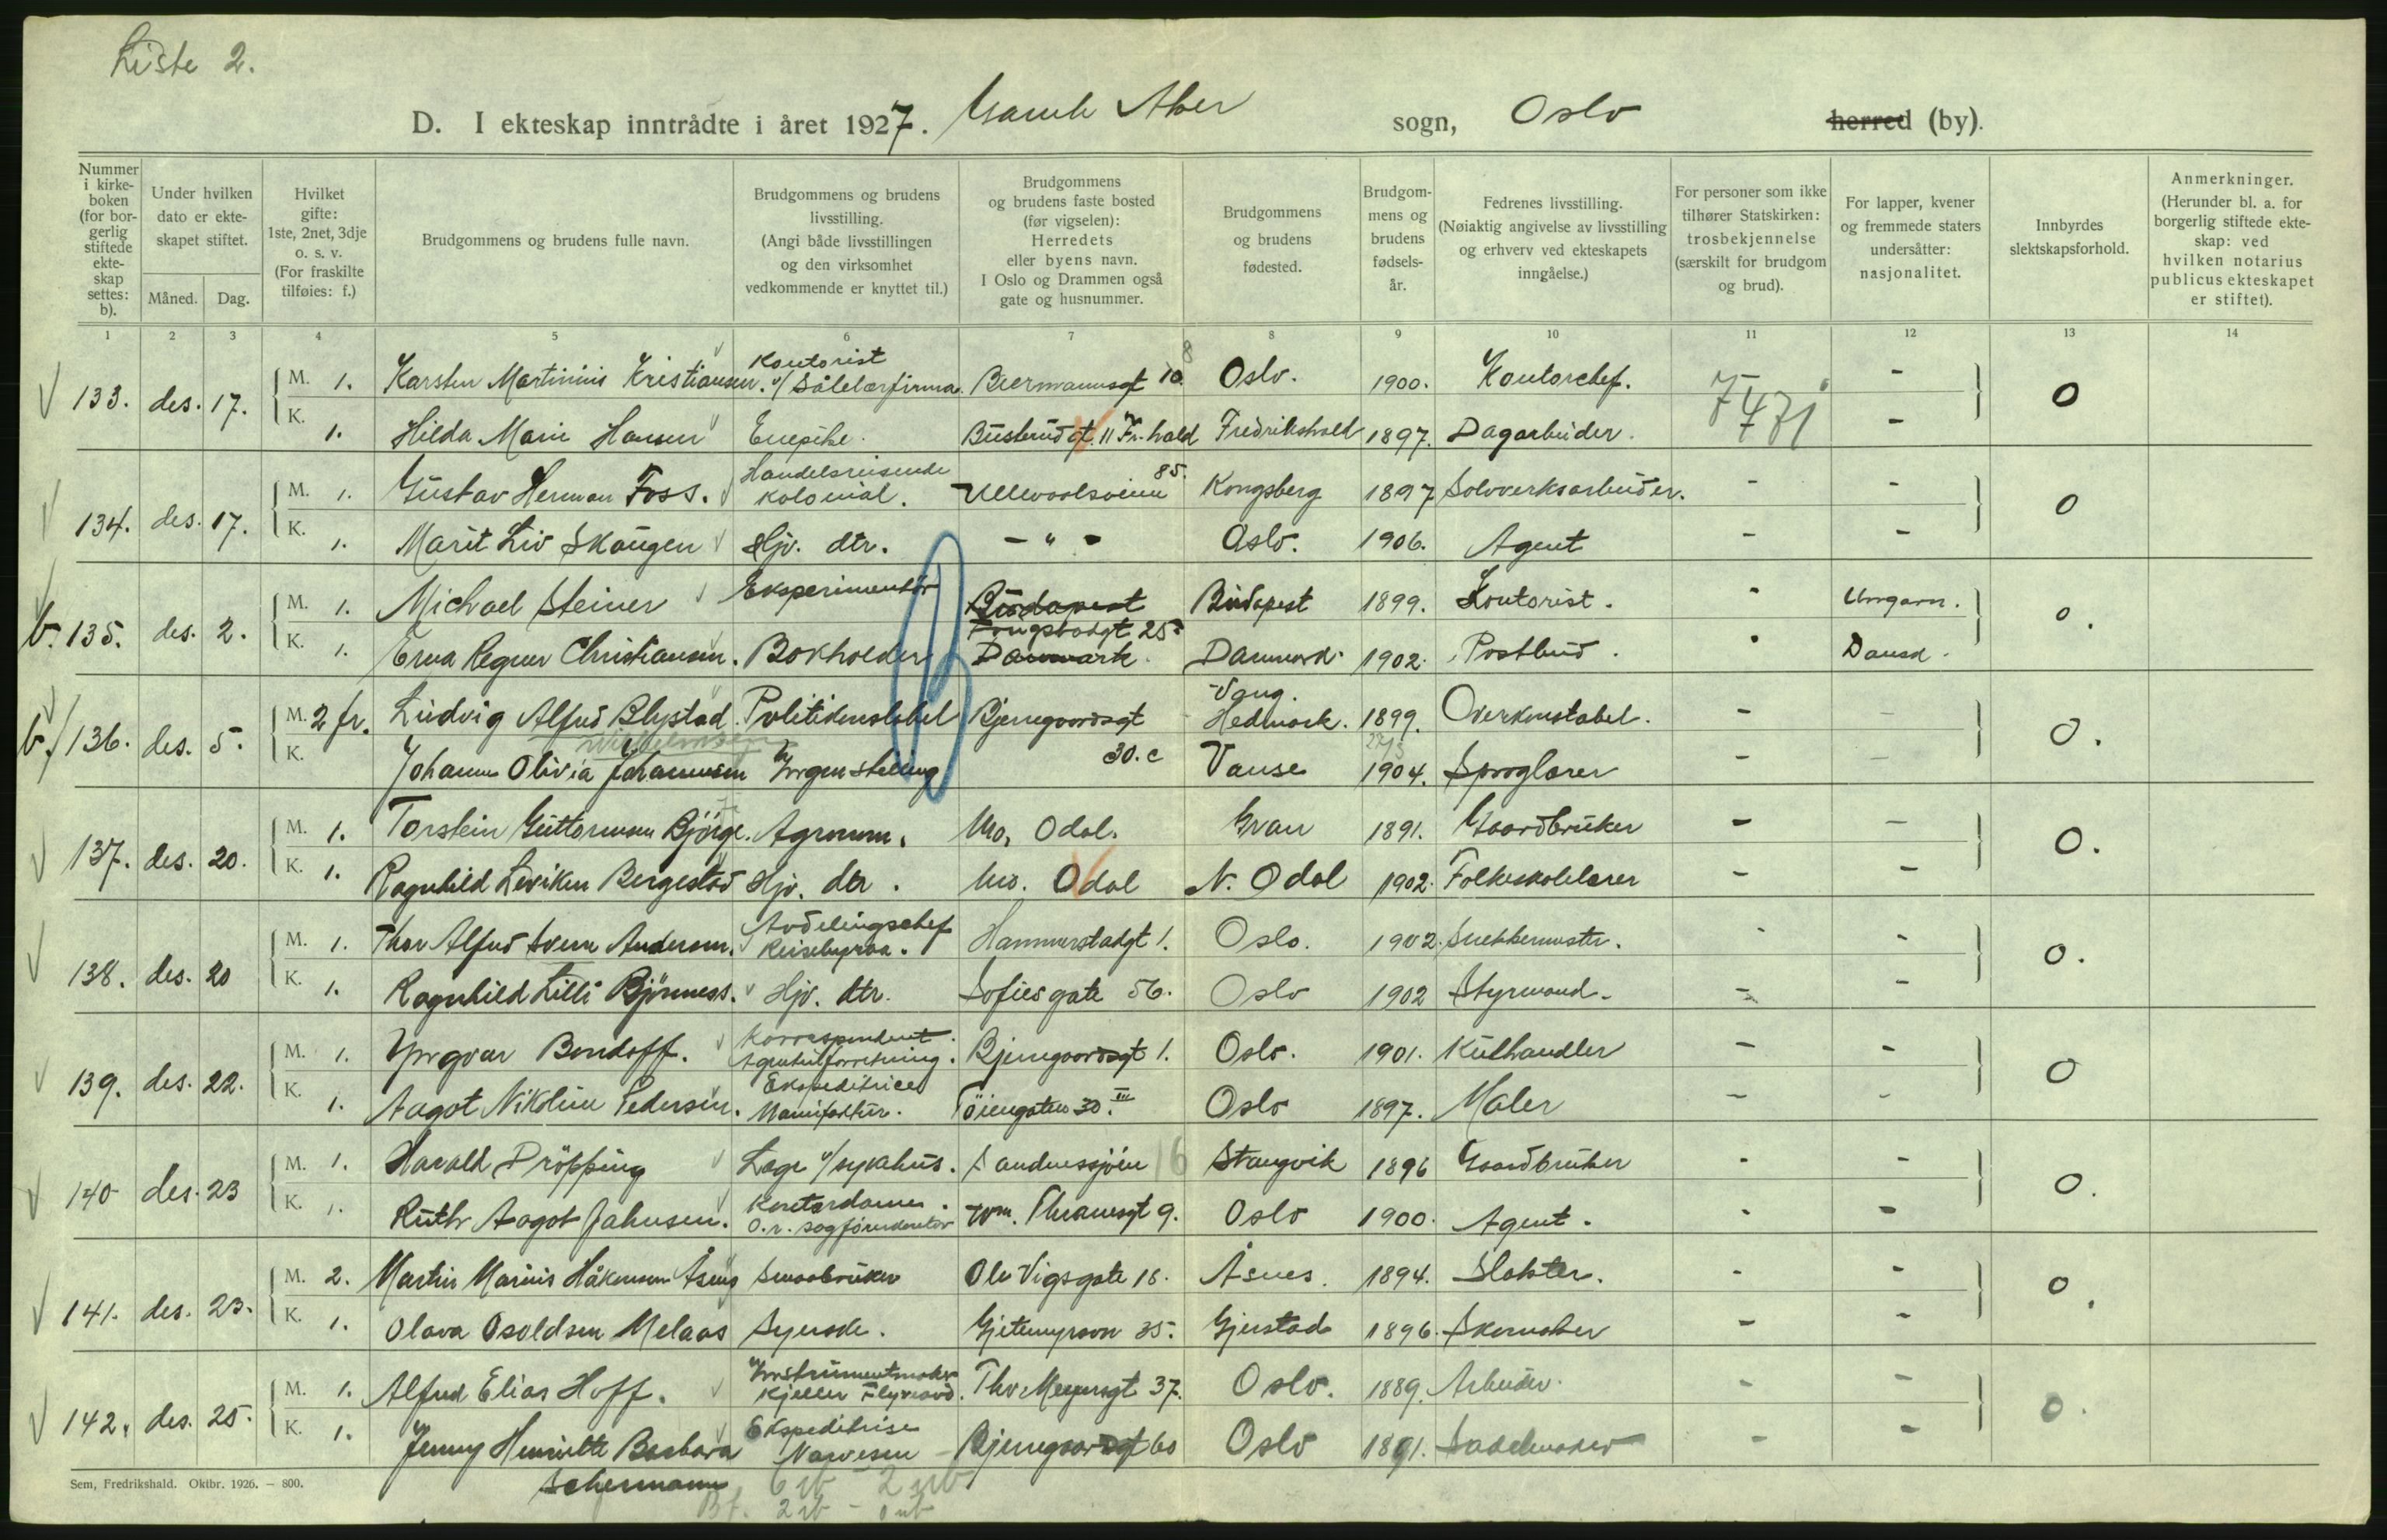 Liste 2.
D. I ekteskap inntrådte i året 1927. Gamle Aker sogn, Oslo herred (by).
Nummer i kirkeboken (for borgerlig stiftede ekteskap settes: b).
Under hvilken dato er ekteskapet stiftet.
Måned. Dag.
Hvilket gifte: 1ste, 2net, 3dje o. s. v. (For fraskilte tilføies: f.)
Brudgommens og brudens fulle navn.
Brudgommens og brudens livsstilling. (Angi både livsstillingen og den virksomhet vedkommende er knyttet til.)
Brudgommens og brudens faste bosted (før vigselen): Herredets eller byens navn. I Oslo og Drammen også gate og husnummer.
Brudgommens og brudens fødested.
Brudgommens og brudens fødselsår.
Fedrenes livsstilling. (Nøiaktig angivelse av livsstilling og erhverv ved ekteskapets inngåelse.)
For personer som ikke tilhører Statskirken: trosbekjennelse (særskilt for brudgom og brud).
For lapper, kvener og fremmede staters undersåtter: nasjonalitet.
Innbyrdes slektskapsforhold.
Anmerkninger. (Herunder bl. a. for borgerlig stiftede ekteskap: ved hvilken notarius publicus ekteskapet er stiftet).
1 2 3 4 5 6 7 8 9 10 11 12 13 14
133. des. 17. M. 1. Karsten Martinius Kristiansen. Kontorist v/ Sålelærfirma. Biermannsgt 10 8 Oslo. 1900. Kontorchef. - 0
K. 1. Hilda Marie Hansen Enepike. Busterudgt 11 Fr.hald Fredrikshald 1897. Dagarbeider. 7471 -
134. des. 17. M. 1. Gustav Herman Foss. Handelsreisende kolonial. Ullevoolsveien 85. Kongsberg 1897 Solvverksarbeider. - - 0
K. 1. Marit Liv Skaugen Hjv. dtr. - " - Oslo. 1906. Agent - -
b. 135. des. 2. M. 1. Michael Steiner Eksperimentör Budapest Budapest 1899. Kontorist. - Ungarn. 0.
K. 1. Erna Regner Christiansen. Bokholder 25 Danmark. Danmark. 1902. Postbud. - Dansk.
b. 136. des. 5. M. 2 fr. Ludvig Alfred Blystad. Politikonstabel Bjerregaardsgt Vang. Hedmark. 1899. Overkonstabel. - - 0.
K. Johanne Olivia Johannesen Ingen stilling 30.c Vanse 1904. Sproglærer - -
137. des. 20. M. 1. Torstein Guttormsen Björge. Agronom. No. Odal. Gran 1891. Gaardbruker - - 0.
K. 1. Ragnhild Leviken Bergestad Hjv. dtr. No. Odal N. Odal 1902. Folkeskolelærer - -
138. des. 20 M. 1. Thor Alfred Svern Andersen. Avdelingschef Reisebyraa. Hammerstadgt 1. Oslo. 1902. Snekkermester. - - 0.
K. 1. Ragnhild Lilli Björnness. Hjv. dtr. Sofiesgate 56. Oslo 1902 Styrmand. - -
139. des. 22. M. 1. Yngvar Bendoff. Korrespondent. Agenturforretning. Bjerregaardsgt 1. Oslo. 1901. Kulhandler - - 0
K. 1. Aagot Nikoline Pedersen. Ekspeditrice Manufaktur. Töiengaten 30. III Oslo 1897. Maler - -
140 des. 23 M. 1. Harald Dröpping Læge v/ sykehus. Sandnessjöen 16 Stangvik 1896 Gaardbruker - - 0.
K. 1. Ruth Aagot Jahnsen. Kontordame. O.r. sagförerkontor Wm. Thranesgt 9. Oslo 1900. Agent. - -
141. des. 23. M. 2. Martin Marius Håkonsen Åsnes Smaabruker Ole Vigsgate 18. Åsnes. 1894. Slakter. - - 0.
K. 1. Olava Osoldsen Melaas Syerske. Gjetemyrsvn 35. Gjerstad 1896. Skomaker - -
142. des. 25. M. 1. Alfred Elias Hoff. Instrumentmaker Kjeller Flyveavd. Thv. Meyersgt 37. Oslo. 1889. Arbeider. - - 0.
K. 1. Jenny Henriette Barbara Schermann Ekspeditrise Narvesen Bjerregaardsgt 60 Oslo 1891. Sadelmaker - -
Sem, Fredrikshald. Oktbr. 1926. — 800.